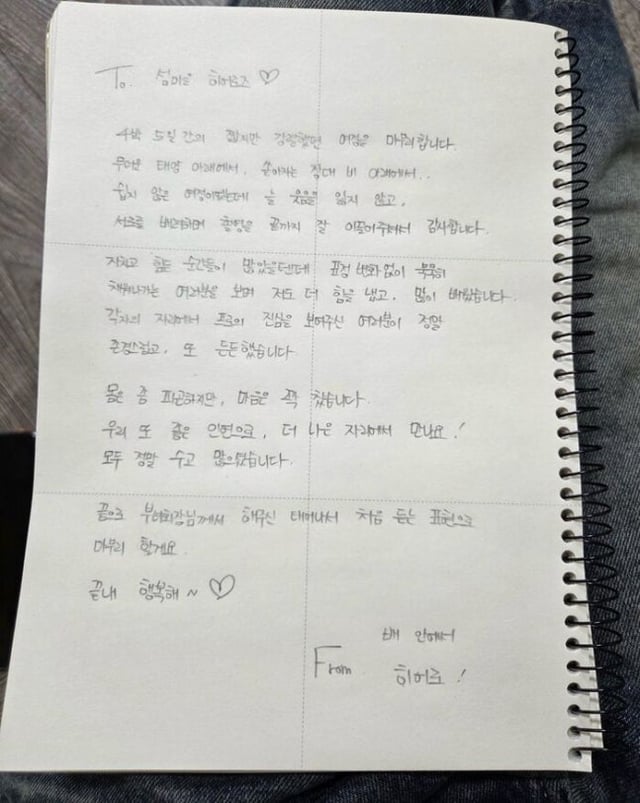 To. 섬마을 히어로즈 ♡
4박 5일 간의 짧지만 강렬했던 여정을 마무리합니다.
무더운 태양 아래에서, 쏟아지는 장대 비 아래에서..
쉽지 않은 여정이었는데 늘 웃음을 잃지 않고,
서로를 배려하며 촬영을 끝까지 잘 이끌어주셔서 감사합니다.
지치고 힘든 순간들이 많았을텐데 표정 변화 없이 묵묵히
해나가는 여러분을 보며 저도 더 힘을 냈고, 많이 배웠습니다.
각자의 자리에서 프로의 진심을 보여주신 여러분이 정말
존경스럽고, 또 든든했습니다
몸은 좀 피곤하지만, 마음은 꽉 찼습니다.
우리 또 좋은 인연으로, 더 나은 자리에서 만나요!
모두 정말 수고 많으셨습니다.
끝으로 부녀회장님께서 해주신 태어나서 처음 듣는 표현으로
마무리 할게요.
끝내 행복해~ ♡
배 안에서
From. 히어로!